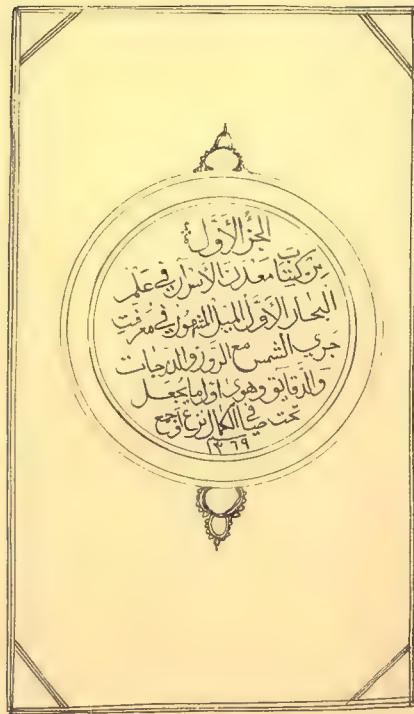 الجزُ الأَوَّلْ
مِن كِتَابْ مَعْدَن الأَسْرَارْ في عَلَمْ
البِحَارْ الأَوَّلْ الميل المشهورْ في مَعْرِفَتْ
جَرْي الشمس مَع الروز والدرجات
وَالدقايق وهوى اول ما يجعل
تحت في الكمال وَاجمع
١٣٦٩